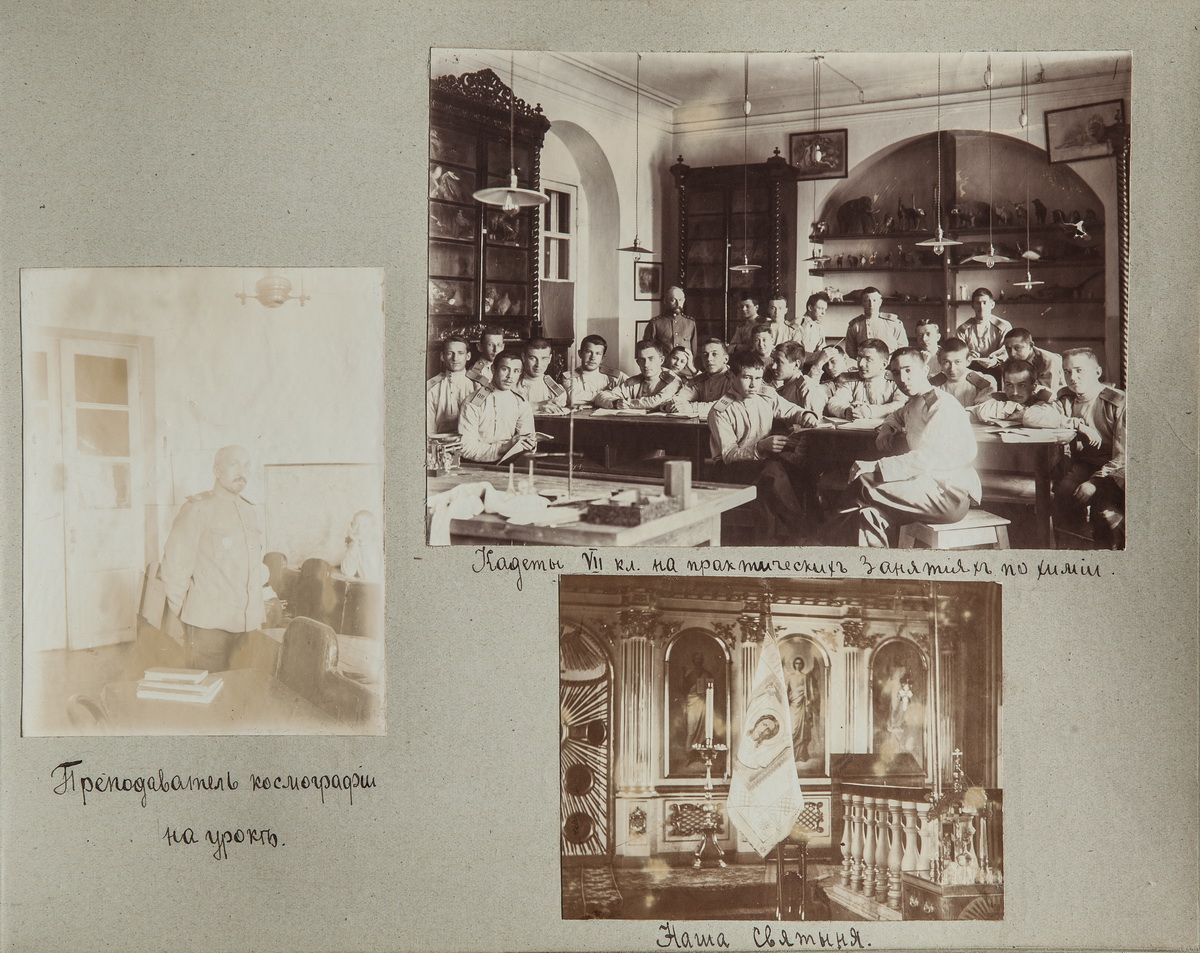 Кадеты VII кл. на практическихъ занятіяхъ по химіи.
Преподаватель космографіи
на урокѣ.
Наша Святыня.